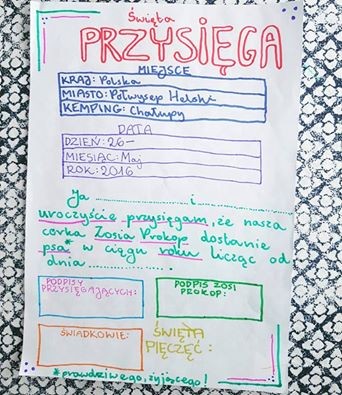 Święta
PRZYSIĘGA
MIEJSCE
KRAJ: Polska
MIASTO: Półwysep Helski
KEMPING: Chałupy
DATA
DZIEŃ: 26-
MIESIĄC: Maj
ROK: 2016
Ja .................. i ..................
uroczyście przysięgam, że nasza
córka Zosia Prokop dostanie
psa* w ciągu roku licząc od
dnia ..............
PODPISY
PRZYSIĘGAJĄCYCH:
PODPIS ZOSI
PROKOP:
ŚWIADKOWIE:
ŚWIĘTA
PIĘCZĘĆ:
*prawdziwego, żyjącego!